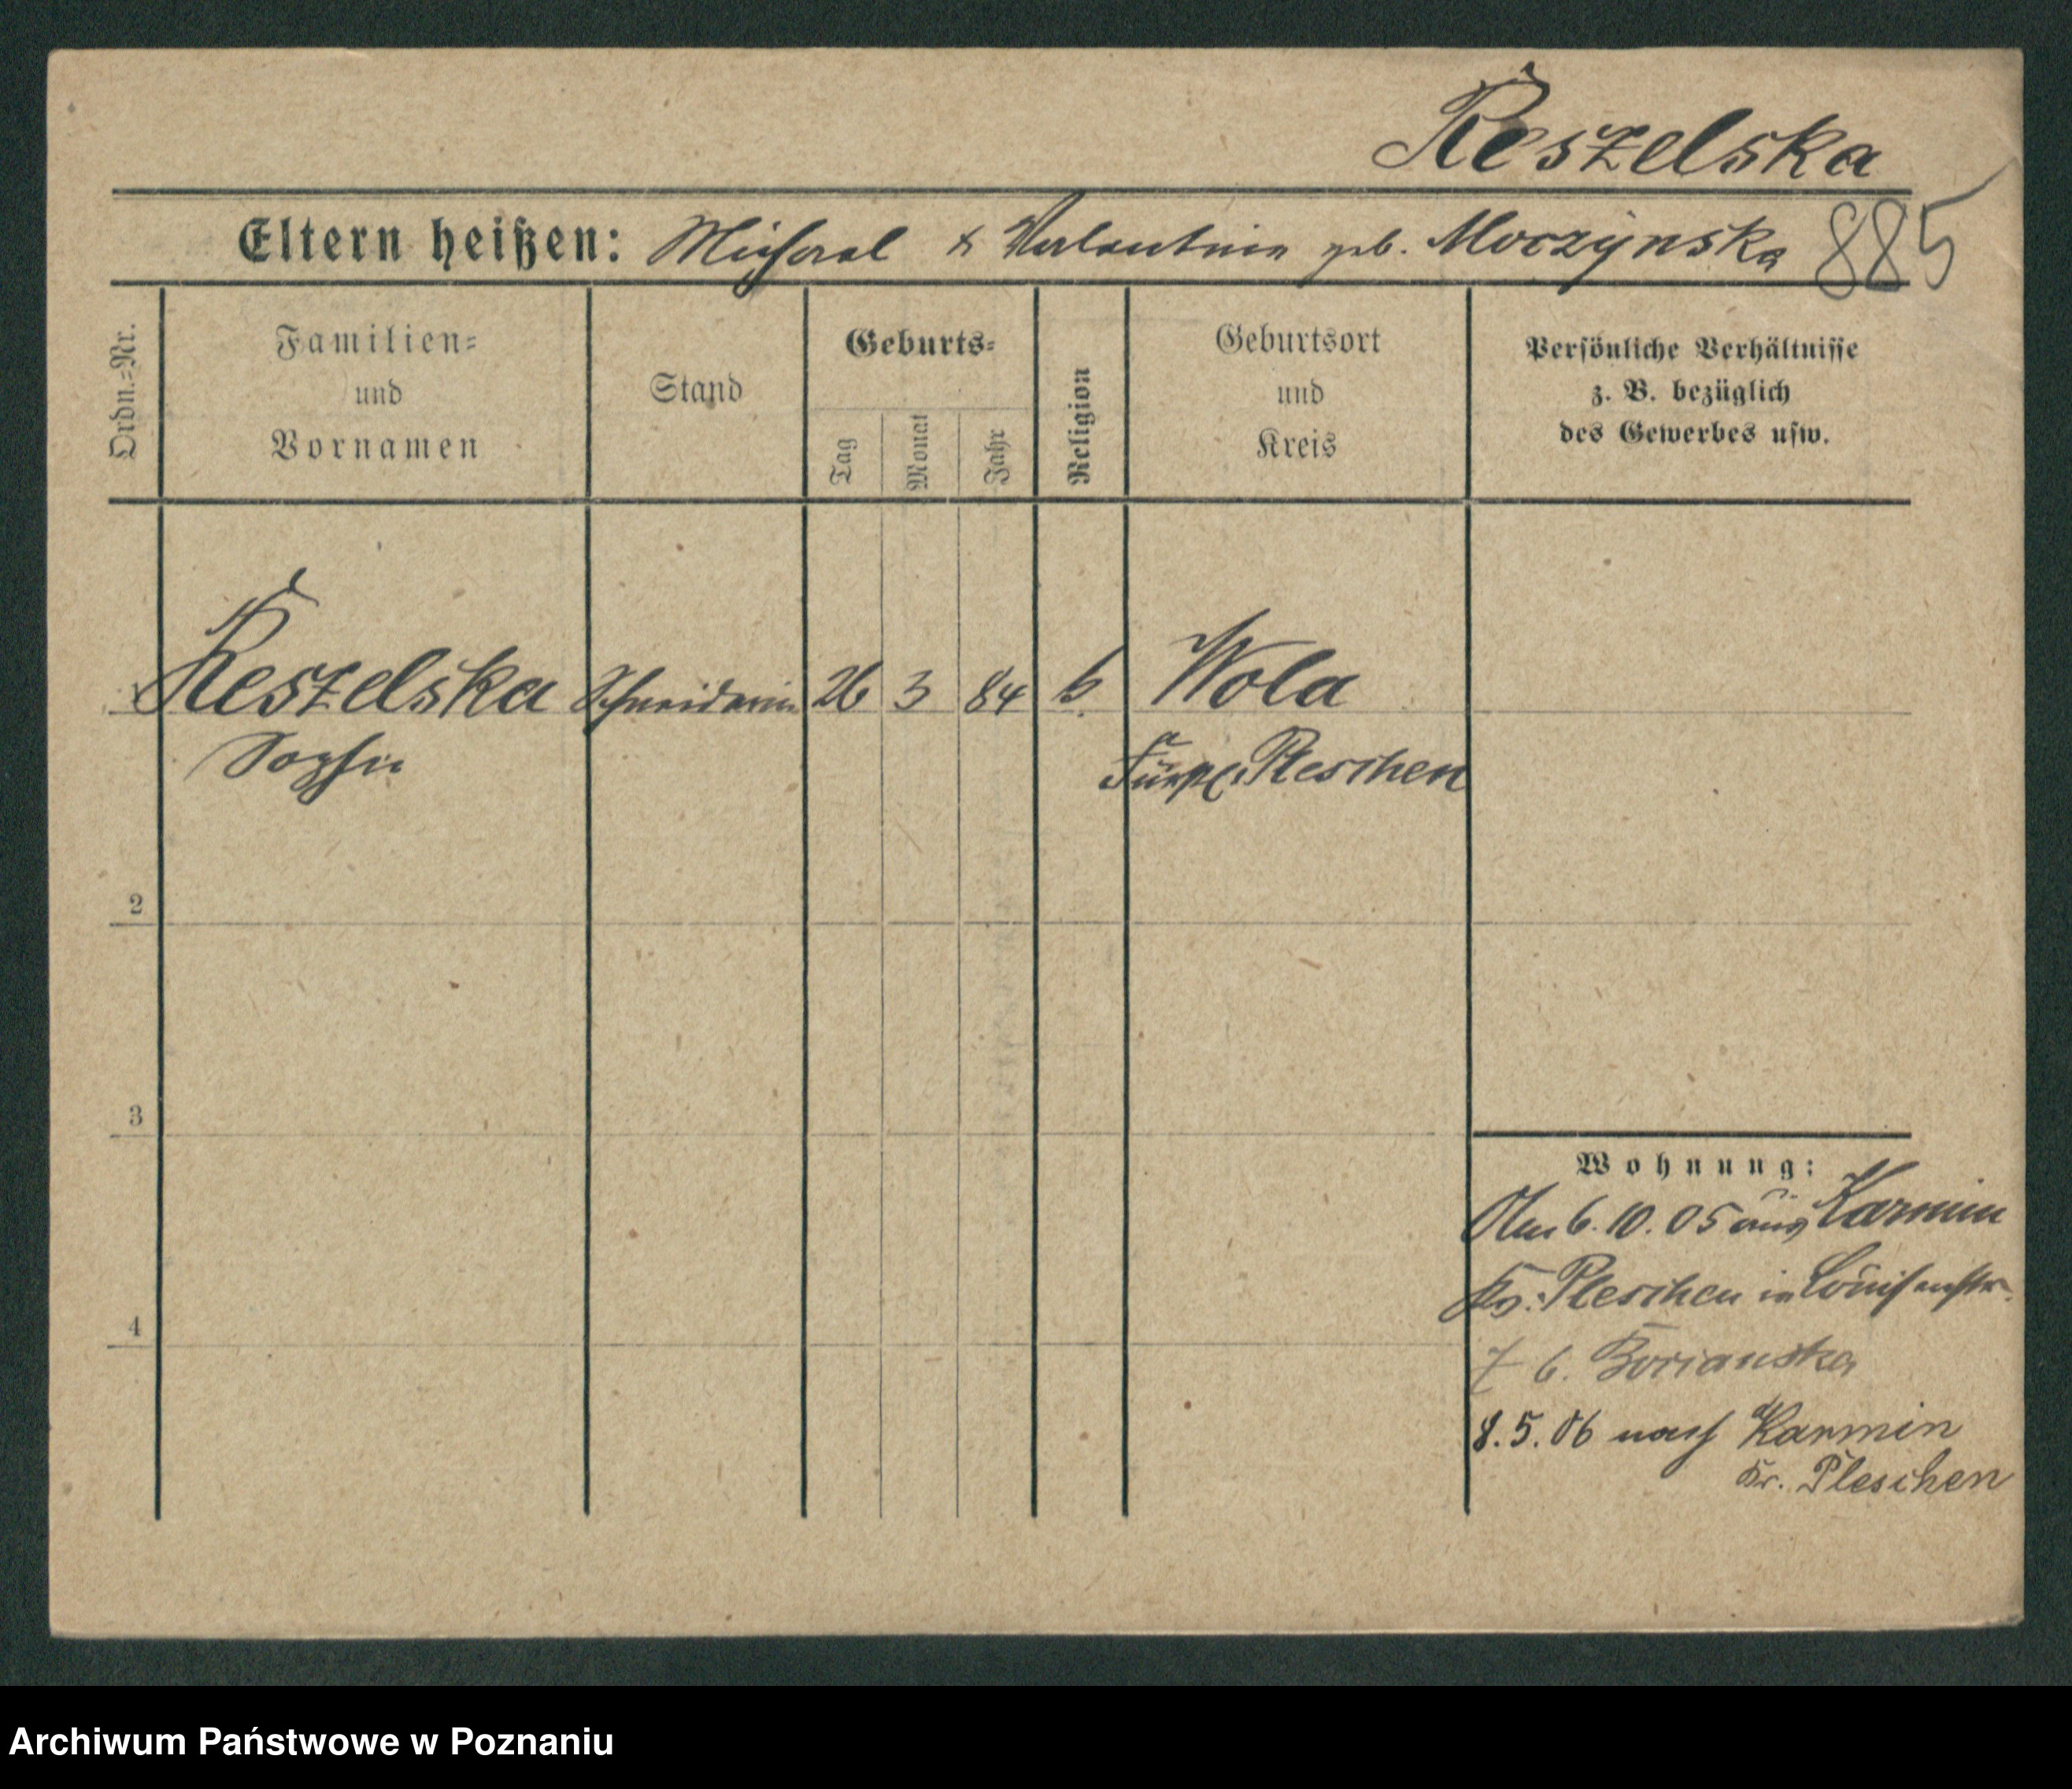 Reszelska
Eltern heißen: Michael & Valentina geb. Moczynska 885
Ordn.=Nr.
Familien=
und
Vornamen
Stand
Geburts=
Tag
Monat
Jahr
Religion
Geburtsort
und
Kreis
Persönliche Verhältnisse
z. B. bezüglich
des Gewerbes usw.
Reszelska Schneiderin 26 3 84 k Wola
Sophie Pleschen
2
3
4
Wohnung:
Am 6. 10. 05 aus Karmin
Kr. Pleschen in Louisenstr.
7 b. Borianska
8. 5. 06 nach Karmin
Kr. Pleschen
Archiwum Państwowe w Poznaniu